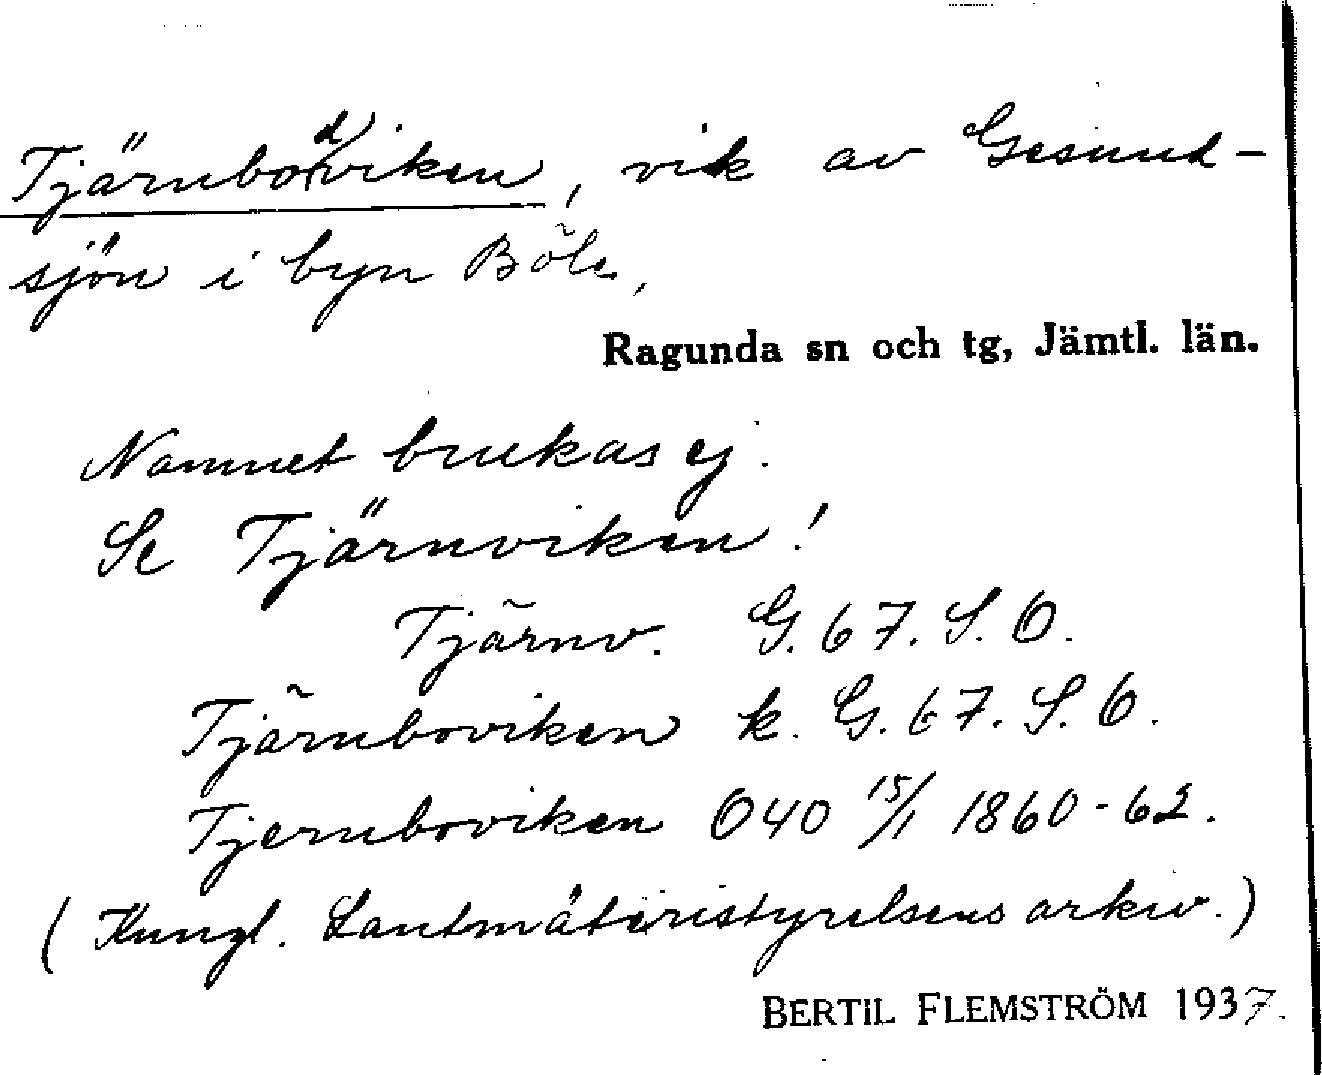 Tjärnbodviken, vik av Gesund-
sjön i byn Böle,
Ragunda sn och tg, Jämtl. län.
Namnet brukas ej.
Se Tjärnviken!
Tjärnv. G. 67. S. Ö.
Tjärnboviken k. G. 67. S. Ö.
Tjernboviken O40 15/1 1860-62.
(Kungl. Lantmäteristyrelsens arkiv.)
BERTIL FLEMSTRÖM 1937.